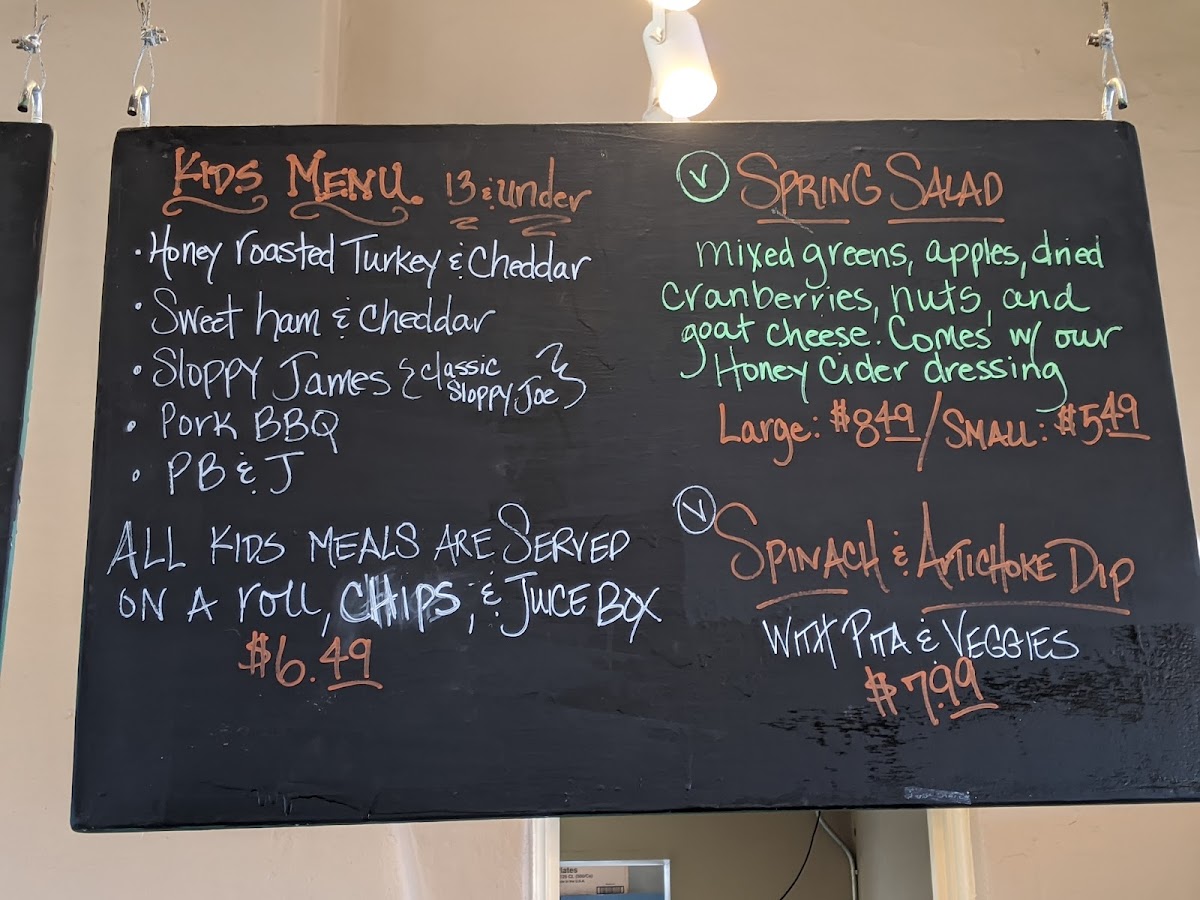 KIDS MENU 13 & under
• Honey roasted Turkey & Cheddar
• Sweet ham & cheddar
• Sloppy James { classic
Sloppy Joe }
• Pork BBQ
• PB & J
ALL KIDS MEALS ARE SERVED
ON A roll, CHIPS, & JUCE BOX
$6.49
V SPRING SALAD
mixed greens, apples, dried
cranberries, nuts, and
goat cheese. Comes w/ our
Honey Cider dressing
Large: $8.49 / SMALL: $5.49
V SPINACH & ARTICHOKE DIP
WITH PITA & VEGGIES
$7.99
lates